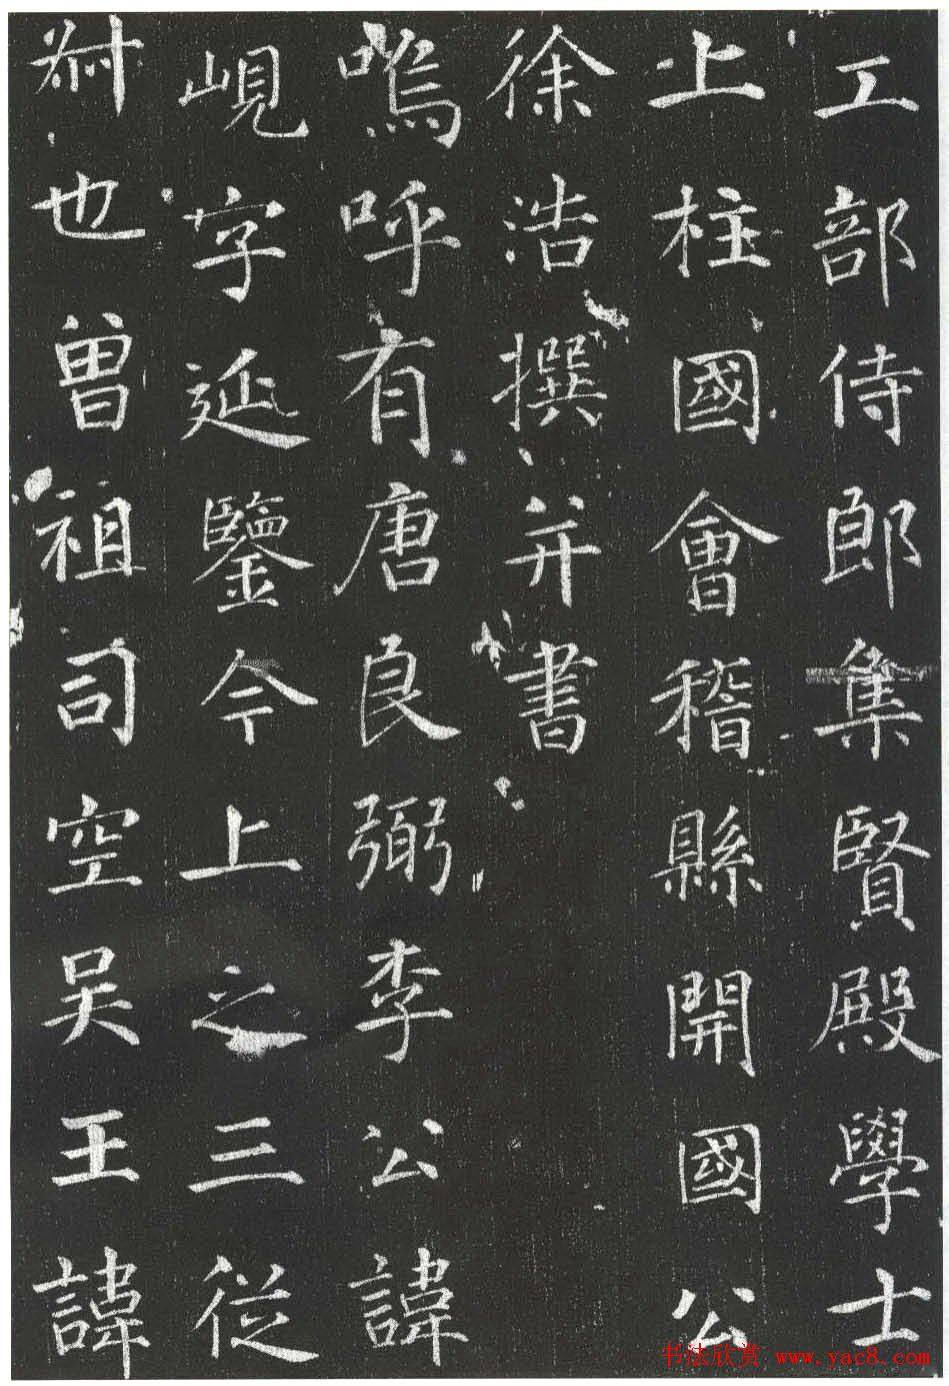 工部侍郎集賢殿學士
上柱國會稽縣開國公
徐浩撰并書
嗚呼有唐良弼李公諱
峴字延鑒今上之三從
叔也曾祖司空吴王諱
书法欣赏 www.yac8.com